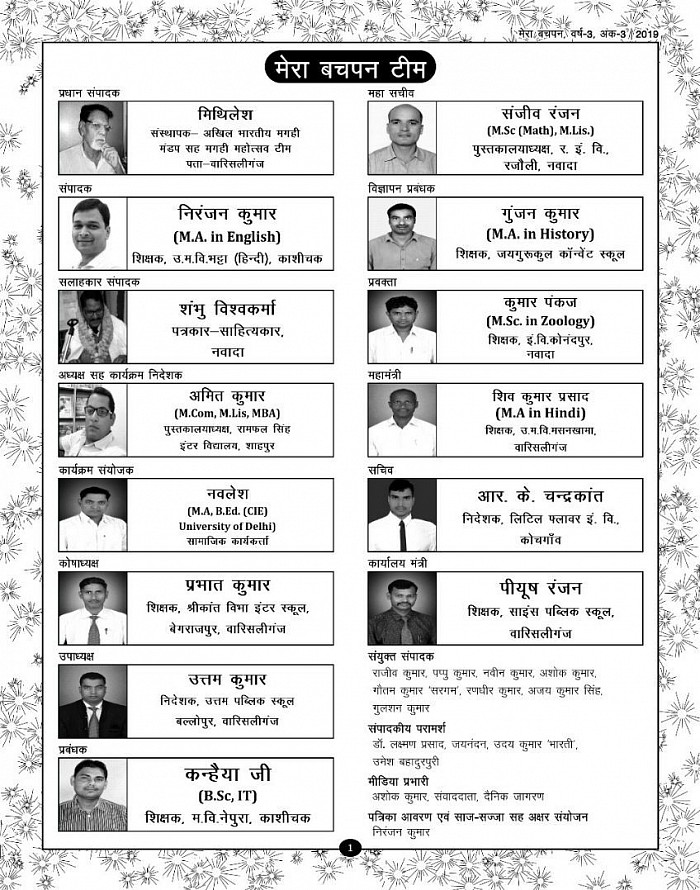 मेरा बचपन, वर्ष-3, अंक-3 / 2019
मेरा बचपन टीम
प्रधान संपादक
मिथिलेश
संस्थापक– अखिल भारतीय मगही
मंडप सह मगही महोत्सव टीम
पता–वारिसलीगंज
संपादक
निरंजन कुमार
(M.A. in English)
शिक्षक, उ.म.वि.भट्टा (हिन्दी), काशीचक
सलाहकार संपादक
शंभु विश्वकर्मा
पत्रकार–साहित्यकार,
नवादा
अध्यक्ष सह कार्यक्रम निदेशक
अमित कुमार
(M.Com, M.Lis, MBA)
पुस्तकालयाध्यक्ष, रामफल सिंह
इंटर विद्यालय, शाहपुर
कार्यक्रम संयोजक
नवलेश
(M.A, B.Ed. (CIE)
University of Delhi)
सामाजिक कार्यकर्त्ता
कोषाध्यक्ष
प्रभात कुमार
शिक्षक, श्रीकांत विभा इंटर स्कूल,
बेगराजपुर, वारिसलीगंज
उपाध्यक्ष
उत्तम कुमार
निदेशक, उत्तम पब्लिक स्कूल
बल्लोपुर, वारिसलीगंज
प्रबंधक
कन्हैया जी
(B.Sc, IT)
शिक्षक, म.वि.नेपुरा, काशीचक
महा सचीव
संजीव रंजन
(M.Sc (Math), M.Lis.)
पुस्तकालयाध्यक्ष, र. इं. वि.,
रजौली, नवादा
विज्ञापन प्रबंधक
गुंजन कुमार
(M.A. in History)
शिक्षक, जयगुरुकुल कॉन्वेंट स्कूल
प्रवक्ता
कुमार पंकज
(M.Sc. in Zoology)
शिक्षक, इं.वि.कोनंदपुर,
नवादा
महामंत्री
शिव कुमार प्रसाद
(M.A in Hindi)
शिक्षक, उ.म.वि.मसनखामा,
वारिसलीगंज
सचिव
आर. के. चन्द्रकांत
निदेशक, लिटिल फ्लावर इं. वि.,
कोचगाँव
कार्यालय मंत्री
पीयूष रंजन
शिक्षक, साइंस पब्लिक स्कूल,
वारिसलीगंज
संयुक्त संपादक
राजीव कुमार, पप्पु कुमार, नवीन कुमार, अशोक कुमार,
गौतम कुमार 'सरगम', रणधीर कुमार, अजय कुमार सिंह,
गुलशन कुमार
संपादकीय परामर्श
डॉ. लक्ष्मण प्रसाद, जयनंदन, उदय कुमार 'भारती',
उमेश बहादुरपुरी
मीडिया प्रभारी
अशोक कुमार, संवाददाता, दैनिक जागरण
पत्रिका आवरण एवं साज-सज्जा सह अक्षर संयोजन
निरंजन कुमार
1